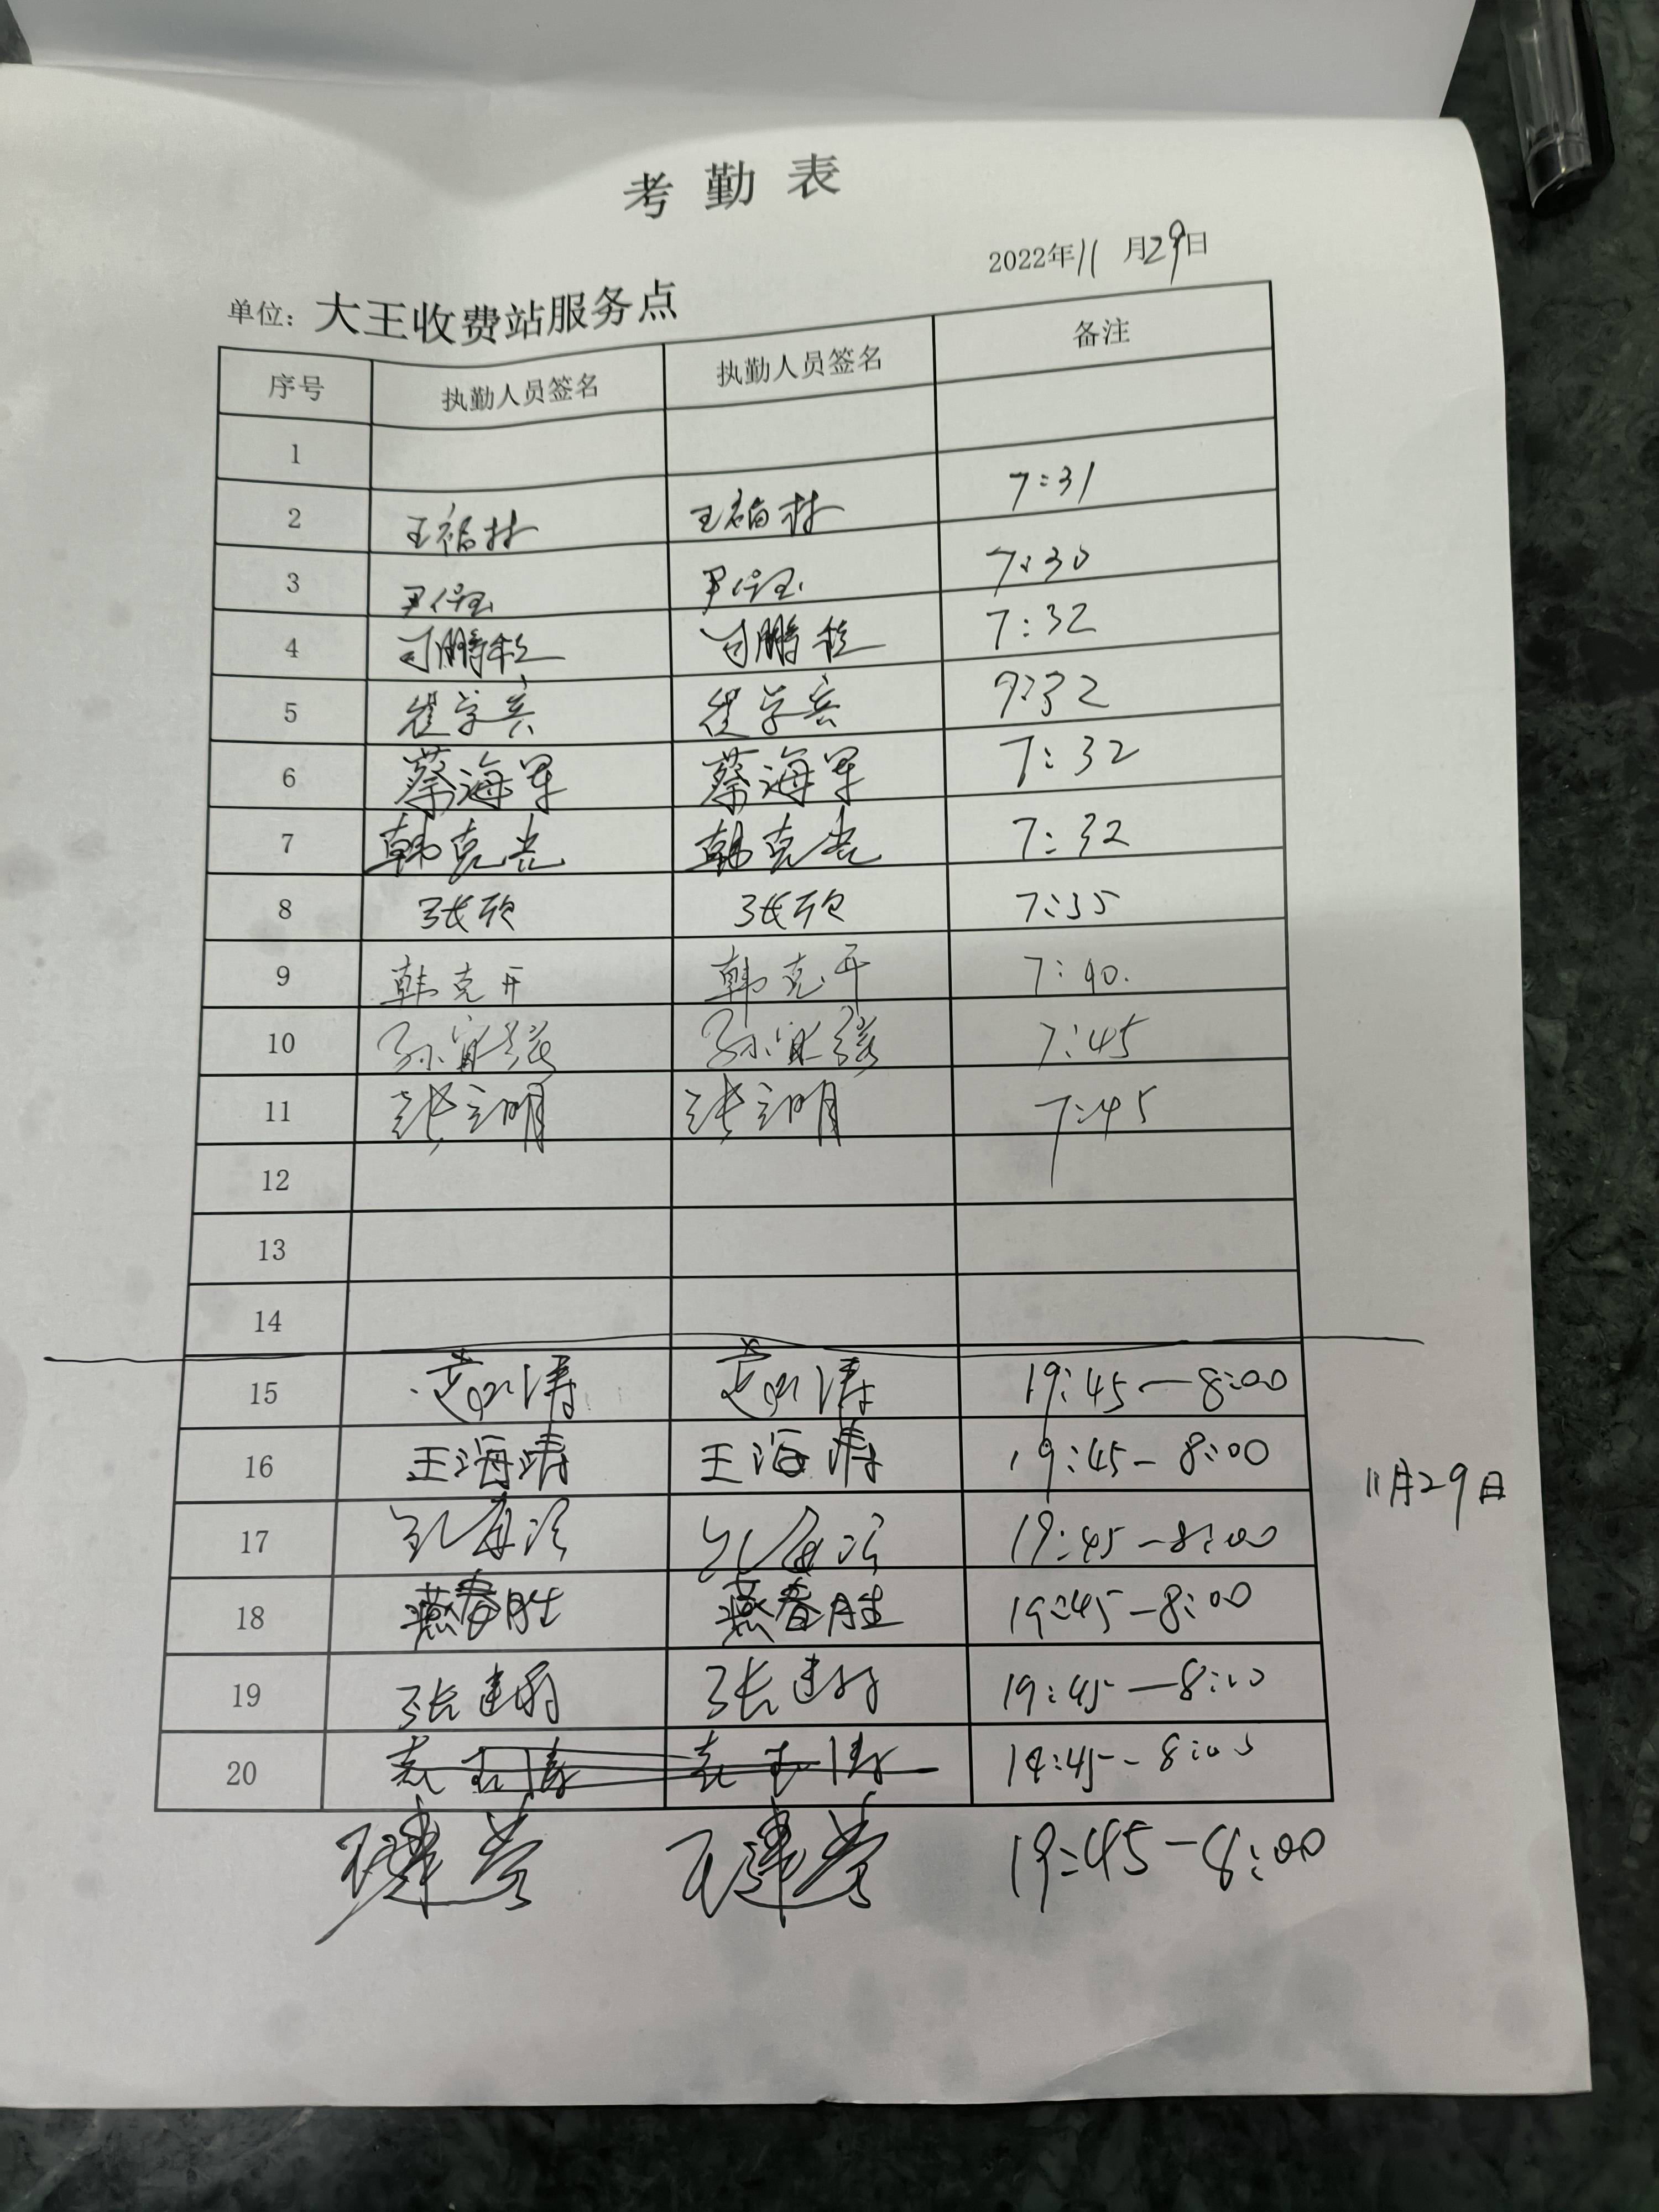 考勤表
2022年11月29日
单位：大王收费站服务点
序号 执勤人员签名 执勤人员签名 备注
1
2 王福林 王福林 7:31
3 7:30
4 7:32
5 崔学兵 崔学兵 9:32
6 蔡海军 蔡海军 7:32
7 韩克光 韩克光 7:32
8 张欣 张欣 7:35
9 韩克开 韩克开 7:40.
10 7:45
11 张立明 张立明 7:45
12
13
14
15 19:45—8:00
16 王海涛 王海涛 19:45-8:00
11月29日
17 19:45-8:00
18 燕春胜 燕春胜 19:45-8:00
19 张建 张建 19:45—8:00
20 19:45-8:00
王建芳 王建芳 19:45-8:00